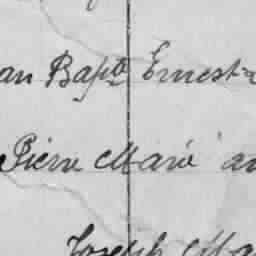 an Bapte Ernest
Pierre Marie
Joseph Ma